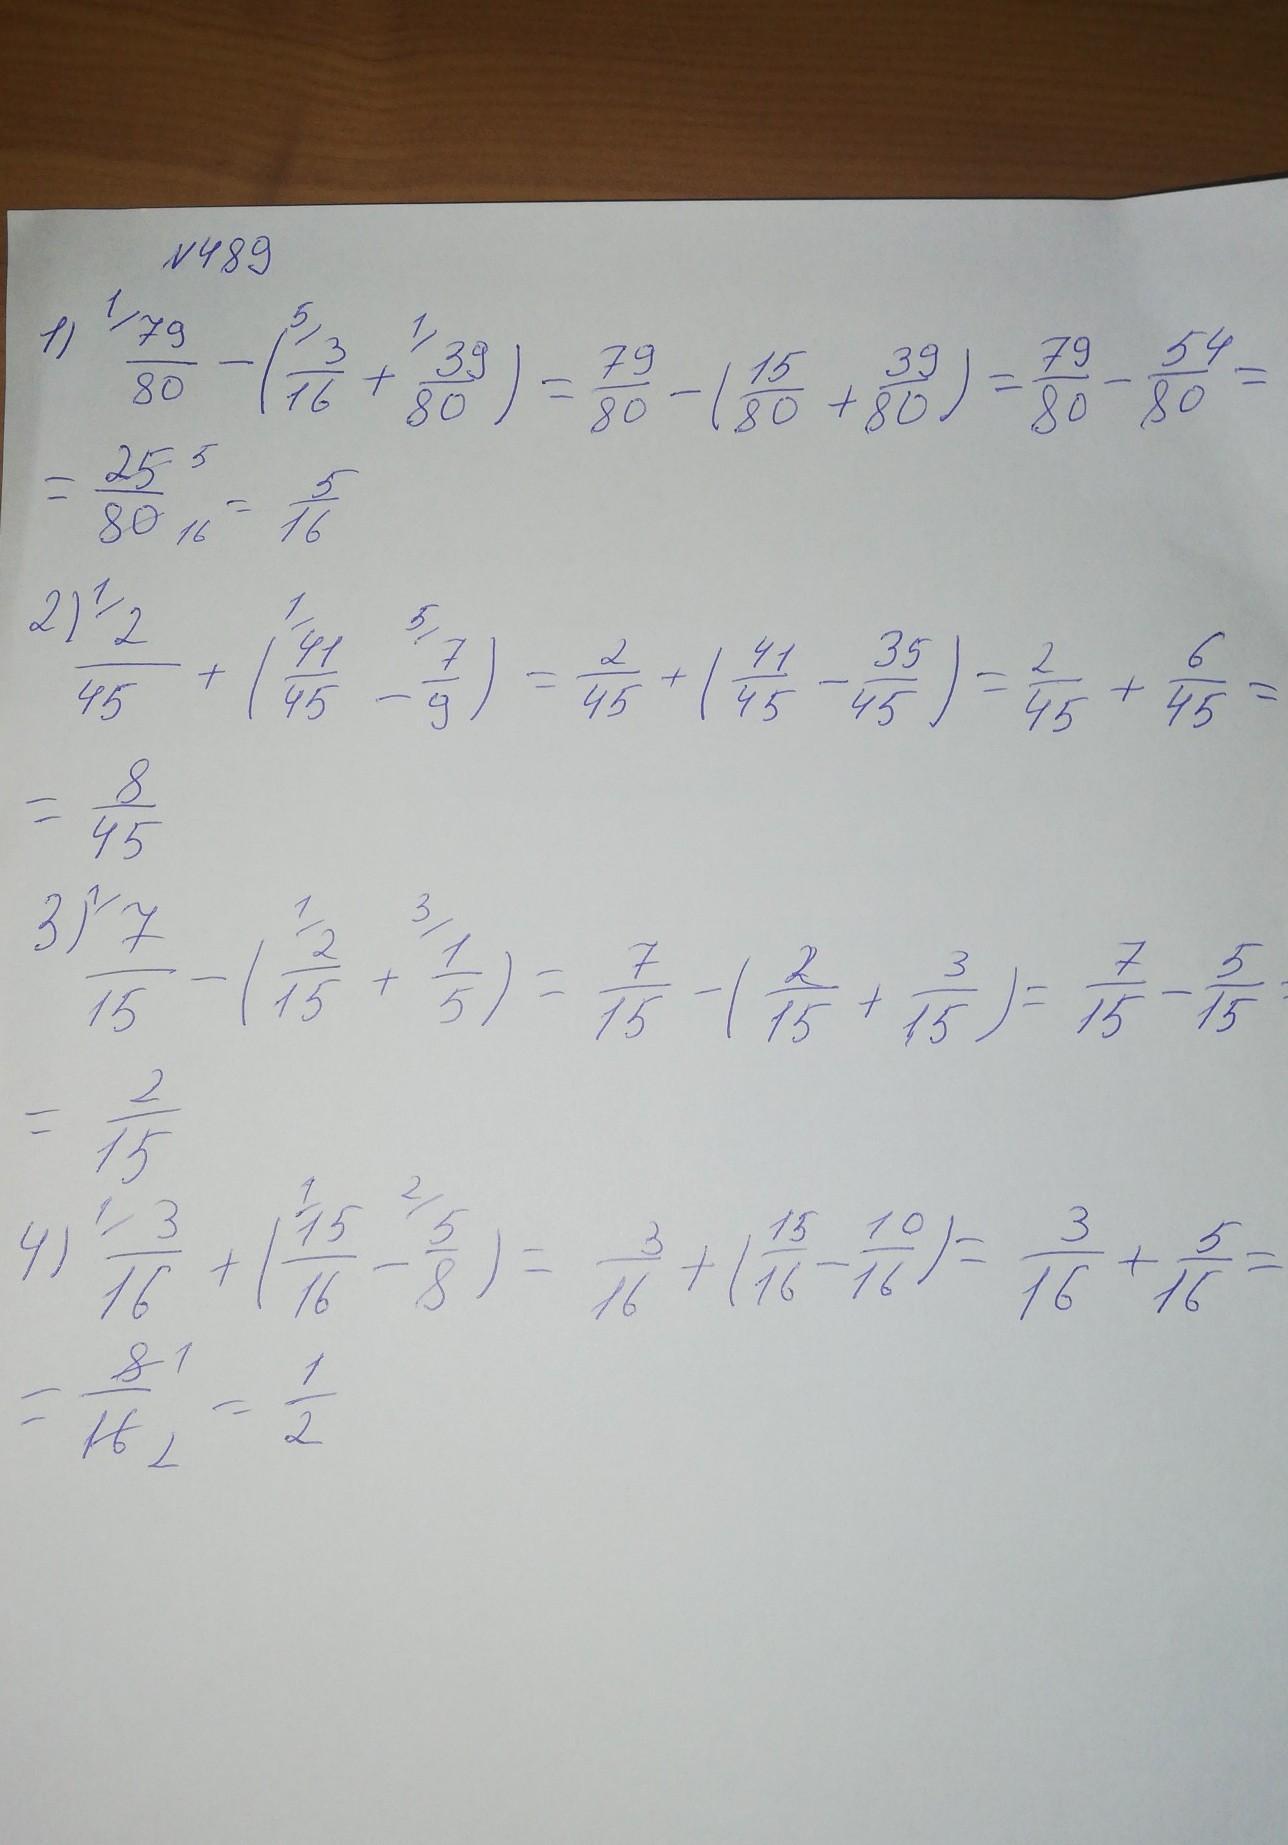 №489
1) ¹/79/80 - (⁵/3/16 + ¹/39/80) = 79/80 - (15/80 + 39/80) = 79/80 - 54/80 =
= 25/80 5 16 = 5/16
2) ¹/2/45 + (¹/41/45 - ⁵/7/9) = 2/45 + (41/45 - 35/45) = 2/45 + 6/45 =
= 8/45
3) ¹/7/15 - (¹/2/15 + ³/1/5) = 7/15 - (2/15 + 3/15) = 7/15 - 5/15 =
= 2/15
4) ¹/3/16 + (¹/15/16 - ²/5/8) = 3/16 + (15/16 - 10/16) = 3/16 + 5/16 =
= 8/16 1 2 = 1/2